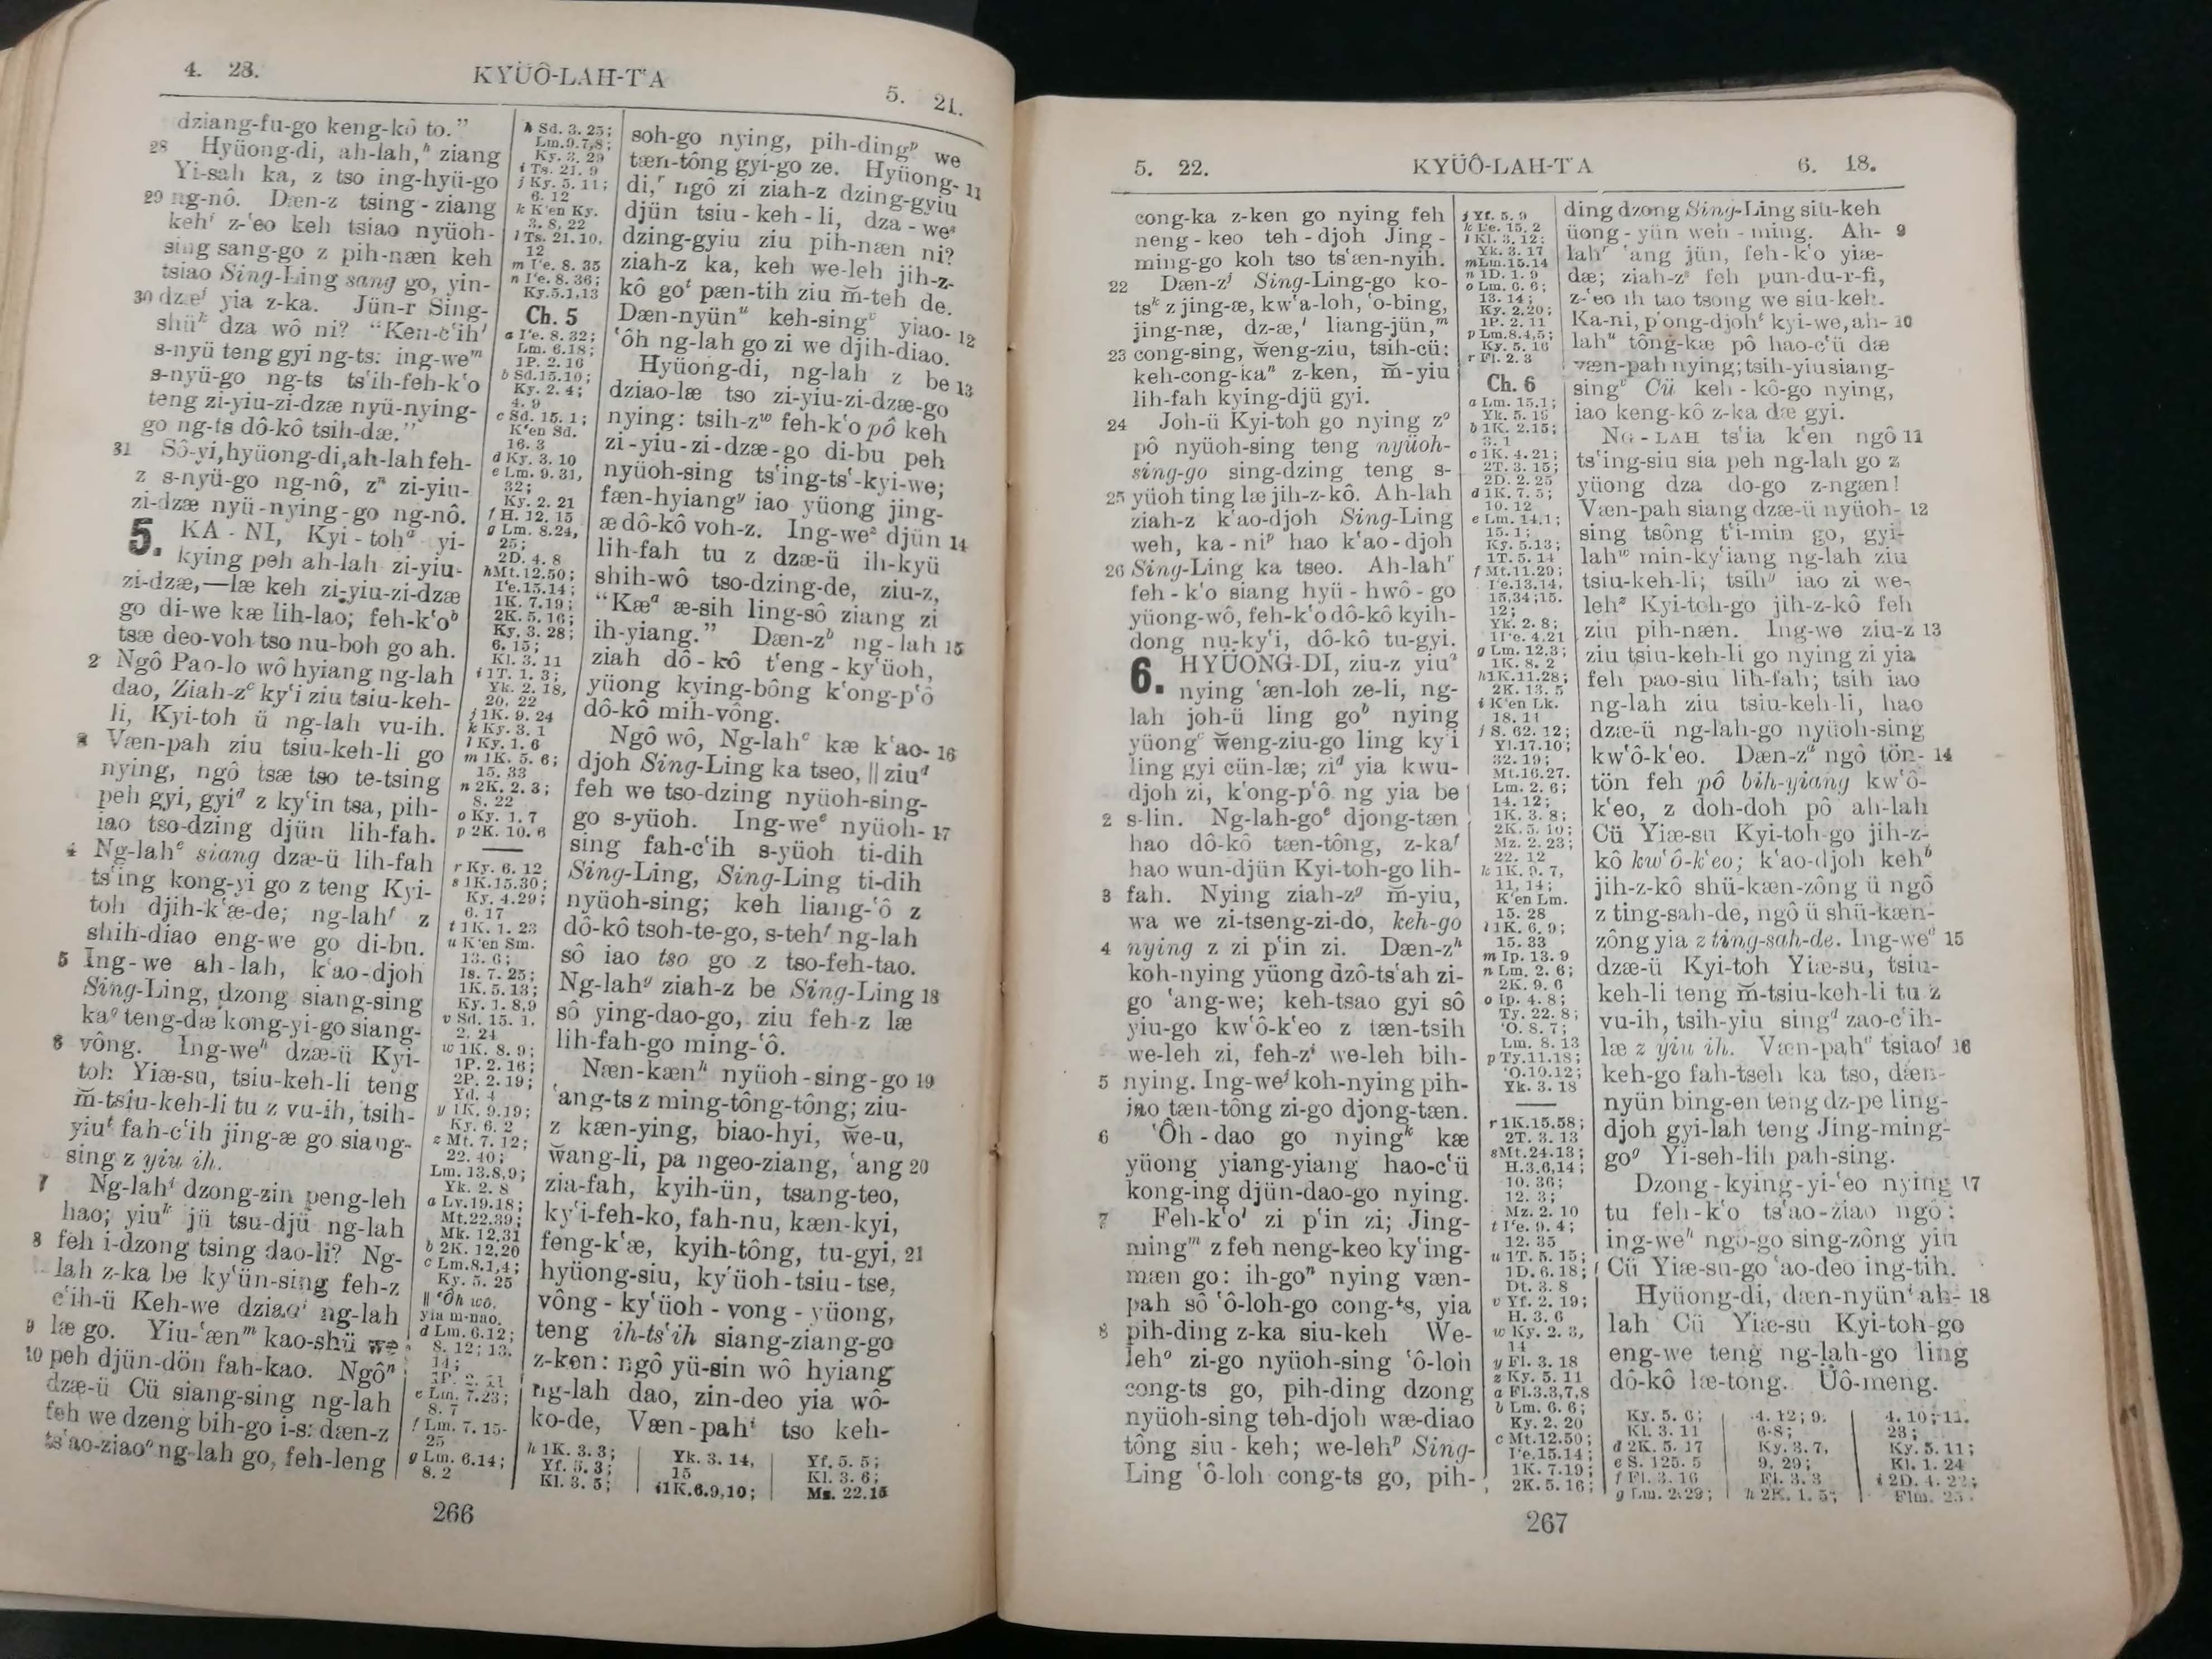 4. 28.
KYÜÔ-LAH-T‘A
5. 21.
dziang-fu-go keng-kô to.”
28 Hyüong-di, ah-lah,h ziang
Yi-sah ka, z tso ing-hyü-go
29 ng-nô. Dæn-z tsing-ziang
kehi z-‘eo keh tsiao nyüoh-
sing sang-go z pih-næn keh
tsiao Sing-Ling sang go, yin-
30 dzæj yia z-ka. Jün-r Sing-
shük dza wô ni? “Ken-c‘ihl
s-nyü teng gyi ng-ts: ing-wem
s-nyü-go ng-ts ts‘ih-feh-k‘o
teng zi-yiu-zi-dzæ nyü-nying-
go ng-ts dô-kô tsih-dæ.”
31 Sô-yi, hyüong-di, ah-lah feh-
z s-nyü-go ng-nô, zn zi-yiu-
zi-dzæ nyü-nying-go ng-nô.
5. KA-NI, Kyi-toha yi-
kying peh ah-lah zi-yiu-
zi-dzæ,—læ keh zi-yiu-zi-dzæ
go di-we kæ lih-lao; feh-k‘ob
tsæ deo-voh tso nu-boh go ah.
2 Ngô Pao-lo wô hyiang ng-lah
dao, Ziah-zc ky‘i ziu tsiu-keh-
li, Kyi-toh ü ng-lah vu-ih.
3 Væn-pah ziu tsiu-keh-li go
nying, ngô tsæ tso te-tsing
peh gyi, gyid z ky‘in tsa, pih-
iao tso-dzing djün lih-fah.
4 Ng-lahe siang dzæ-ü lih-fah
ts‘ing kong-yi go z teng Kyi-
toh djih-k‘æ-de; ng-lahf z
shih-diao eng-we go di-bu.
5 Ing-we ah-lah, k‘ao-djoh
Sing-Ling, dzong siang-sing
kag teng-dæ kong-yi-go siang-
6 vông. Ing-weh dzæ-ü Kyi-
toh Yiæ-su, tsiu-keh-li teng
m̆-tsiu-keh-li tu z vu-ih, tsih-
yiuk fah-c‘ih jing-æ go siang-
sing z yiu ih.
7 Ng-lahi dzong-zin peng-leh
hao; yiuk jü tsu-djü ng-lah
8 feh i-dzong tsing dao-li? Ng-
lah z-ka be ky‘ün-sing feh-z
c‘ih-ü Keh-we dziaol ng-lah
9 læ go. Yiu-‘ænm kao-shü we
10 peh djün-dön fah-kao. Ngôn
dzæ-ü Cü siang-sing ng-lah
feh we dzeng bih-go i-s: dæn-z
ts‘ao-ziaoo ng-lah go, feh-leng
h Sd. 3. 25;
Lm. 9. 7,8;
Ky. 3. 29
i Ts. 21. 9
j Ky. 5. 11;
6. 12
k K‘en Ky.
3. 8, 22
l Ts. 21. 10,
12
m I‘e. 8. 35
n I‘e. 8. 36;
Ky. 5. 1, 13
Ch. 5
a I‘e. 8. 32;
Lm. 6. 18;
1P. 2. 16
b Sd. 15. 10;
Ky. 2. 4;
4. 9
c Sd. 15. 1;
K‘en Sd.
16. 3
d Ky. 3. 10
e Lm. 9. 31,
32;
Ky. 2. 21
f H. 12. 15
g Lm. 8. 24,
25;
2D. 4. 8
h Mt. 12. 50;
I‘e. 15. 14;
1K. 7. 19;
2K. 5. 16;
Ky. 3. 28;
6. 15;
Kl. 3. 11
i 1T. 1. 3;
Yk. 2. 18,
20, 22
j 1K. 9. 24
k Ky. 3. 1
l Ky. 1. 6
m 1K. 5. 6;
15. 33
n 2K. 2. 3;
8. 22
o Ky. 1. 7
p 2K. 10. 6
r Ky. 6. 12
s 1K. 15. 30;
Ky. 4. 29;
6. 17
t 1K. 1. 23
u K‘en Sm.
13. 6;
Is. 7. 25;
1K. 5. 13;
Ky. 1. 8, 9
v Sd. 15. 1.
2. 24
w 1K. 8. 9;
1P. 2. 16;
2P. 2. 19;
Yd. 4
y 1K. 9. 19;
Ky. 6. 2
z Mt. 7. 12;
22. 40;
Lm. 13. 8, 9;
Yk. 2. 8
a Lv. 19. 18;
Mt. 22. 39;
Mk. 12. 31
b 2K. 12. 20
c Lm. 8. 1, 4;
Ky. 5. 25
|| ‘Ôh wô.
yia m-nao.
d Lm. 6. 12;
8. 12; 13.
14;
1P. 2. 11
e Lm. 7. 23;
8. 7
f Lm. 7. 15-
25
g Lm. 6. 14;
8. 2
soh-go nying, pih-dingp we
tæn-tông gyi-go ze. Hyüong-
di,r ngô zi ziah-z dzing-gyiu 11
djün tsiu-keh-li, dza-wes
dzing-gyiu ziu pih-næn ni?
ziah-z ka, keh we-leh jih-z-
kô got pæn-tih ziu m̆-teh de.
Dæn-nyünu keh-singv yiao- 12
‘ôh ng-lah go zi we djih-diao.
Hyüong-di, ng-lah z be 13
dziao-læ tso zi-yiu-zi-dzæ-go
nying: tsih-zw feh-k‘o pô keh
zi-yiu-zi-dzæ-go di-bu peh
nyüoh-sing ts‘ing-ts‘-kyi-we;
fæn-hyiangy iao yüong jing-
æ dô-kô voh-z. Ing-wez djün 14
lih-fah tu z dzæ-ü ih-kyü
shih-wô tso-dzing-de, ziu-z,
“Kæa æ-sih ling-sô ziang zi
ih-yiang.” Dæn-zb ng-lah 15
ziah dô-kô t‘eng-ky‘üoh,
yüong kying-bông k‘ong-p‘ô
dô-kô mih-vông.
Ngô wô, Ng-lahc kæ k‘ao- 16
djoh Sing-Ling ka tseo, || ziud
feh we tso-dzing nyüoh-sing-
go s-yüoh. Ing-wee nyüoh- 17
sing fah-c‘ih s-yüoh ti-dih
Sing-Ling, Sing-Ling ti-dih
nyüoh-sing; keh liang-‘ô z
dô-kô tsoh-te-go, s-tehf ng-lah
sô iao tso go z tso-feh-tao.
Ng-lahg ziah-z be Sing-Ling 18
sô ying-dao-go, ziu feh-z læ
lih-fah-go ming-‘ô.
Næn-kænh nyüoh-sing-go 19
‘ang-ts z ming-tông-tông; ziu-
z kæn-ying, biao-hyi, w̆e-u,
w̆ang-li, pa ngeo-ziang, ‘ang 20
zia-fah, kyih-ün, tsang-teo,
ky‘i-feh-ko, fah-nu, kæn-kyi,
feng-k‘æ, kyih-tông, tu-gyi, 21
hyüong-siu, ky‘üoh-tsiu-tse,
vông-ky‘üoh-vong-yüong,
teng ih-ts‘ih siang-ziang-go
z-ken: ngô yü-sin wô hyiang
ng-lah dao, zin-deo yia wô-
ko-de, Væn-pahi tso keh-
h 1K. 3. 3;
Yf. 5. 3;
Kl. 3. 5;
Yk. 3. 14,
15
i 1K. 6. 9, 10;
Yf. 5. 5;
Kl. 3. 6;
Ms. 22. 15
266
5. 22.
KYÜÔ-LAH-T‘A
6. 18.
cong-ka z-ken go nying feh
neng-keo teh-djoh Jing-
ming-go koh tso ts‘æn-nyih.
22 Dæn-zj Sing-Ling-go ko-
tsk z jing-æ, kw‘a-loh, ‘o-bing,
jing-næ, dz-æ,l liang-jün,m
23 cong-sing, w̆eng-ziu, tsih-cü:
keh-cong-kan z-ken, m̆-yiu
lih-fah kying-djü gyi.
24 Joh-ü Kyi-toh go nying zo
pô nyüoh-sing teng nyüoh-
sing-go sing-dzing teng s-
25 yüoh ting læ jih-z-kô. Ah-lah
ziah-z k‘ao-djoh Sing-Ling
weh, ka-nip hao k‘ao-djoh
26 Sing-Ling ka tseo. Ah-lahr
feh-k‘o siang hyü-hwô-go
yüong-wô, feh-k‘o dô-kô kyih-
dong nu-ky‘i, dô-kô tu-gyi.
6. HYÜONG-DI, ziu-z yiua
nying ‘æn-loh ze-li, ng-
lah joh-ü ling gob nying
yüongc w̆eng-ziu-go ling ky‘i
ling gyi cün-læ; zid yia kwu-
djoh zi, k‘ong-p‘ô ng yia be
2 s-lin. Ng-lah-goe djong-tæn
hao dô-kô tæn-tông, z-kaf
hao wun-djün Kyi-toh-go lih-
3 fah. Nying ziah-zg m̆-yiu,
wa we zi-tseng-zi-do, keh-go
4 nying z zi p‘in zi. Dæn-zh
koh-nying yüong dzô-ts‘ah zi-
go ‘ang-we; keh-tsao gyi sô
yiu-go kw‘ô-k‘eo z tæn-tsih
we-leh zi, feh-zi we-leh bih-
5 nying. Ing-wej koh-nying pih-
iao tæn-tông zi-go djong-tæn.
6 ‘Ôh-dao go nyingk kæ
yüong yiang-yiang hao-c‘ü
kong-ing djün-dao-go nying.
7 Feh-k‘ol zi p‘in zi; Jing-
mingm z feh neng-keo ky‘ing-
mæn go: ih-gon nying væn-
pah sô ‘ô-loh-go cong-ts, yia
8 pih-ding z-ka siu-keh We-
leho zi-go nyüoh-sing ‘ô-loh
cong-ts go, pih-ding dzong
nyüoh-sing teh-djoh wæ-diao
tông siu-keh; we-lehp Sing-
Ling ‘ô-loh cong-ts go, pih-
j Yf. 5. 9
k I‘e. 15. 2
l Kl. 3. 12;
Yk. 3. 17
m Lm. 15. 14
n 1D. 1. 9
o Lm. 6. 6;
13. 14;
Ky. 2. 20;
1P. 2. 11
p Lm. 8. 4, 5;
Ky. 5. 16
r Fl. 2. 3
Ch. 6
a Lm. 15. 1;
Yk. 5. 19
b 1K. 2. 15;
3. 1
c 1K. 4. 21;
2T. 3. 15;
2D. 2. 25
d 1K. 7. 5;
10. 12
e Lm. 14. 1;
15. 1;
Ky. 5. 13;
1T. 5. 14
f Mt. 11. 29;
I‘e. 13. 14,
15, 34; 15.
12;
Yk. 2. 8;
1I‘e. 4. 21
g Lm. 12. 3;
1K. 8. 2
h 1K. 11. 28;
2K. 13. 5
i K‘en Lk.
18. 11
j S. 62. 12;
Yl. 17. 10;
32. 19;
Mt. 16. 27.
Lm. 2. 6;
14. 12;
1K. 3. 8;
2K. 5. 10;
Mz. 2. 23;
22. 12
k 1K. 9. 7,
11, 14;
K‘en Lm.
15. 28
l 1K. 6. 9;
15. 33
m Ip. 13. 9
n Lm. 2. 6;
2K. 9. 6
o Ip. 4. 8;
Ty. 22. 8;
‘O. 8. 7;
Lm. 8. 13
p Ty. 11. 18;
‘O. 10. 12;
Yk. 3. 18
r 1K. 15. 58;
2T. 3. 13
s Mt. 24. 13;
H. 3. 6, 14;
10. 36;
12. 3;
Mz. 2. 10
t I‘e. 9. 4;
12. 35
u 1T. 5. 15;
1D. 6. 18;
Dt. 3. 8
v Yf. 2. 19;
H. 3. 6
w Ky. 2. 3,
14
y Fl. 3. 18
z Ky. 5. 11
a Fl. 3. 3, 7, 8
b Lm. 6. 6;
Ky. 2. 20
c Mt. 12. 50;
I‘e. 15. 14;
1K. 7. 19;
2K. 5. 16;
ding dzong Sing-Ling siu-keh
üong-yün weh-ming. Ah- 9
lahr ‘ang jün, feh-k‘o yiæ-
dæ; ziah-zs feh pun-du-r-fi,
z-‘eo ih tao tsong we siu-keh.
Ka-ni, p‘ong-djoht kyi-we, ah- 10
lahu tông-kæ pô hao-c‘ü dæ
væn-pah nying; tsih-yiu siang-
singv Cü keh-kô-go nying,
iao keng-kô z-ka dæ gyi.
NG-LAH ts‘ia k‘en ngô 11
ts‘ing-siu sia peh ng-lah go z
yüong dza do-go z-ngæn!
Væn-pah siang dzæ-ü nyüoh- 12
sing tsông t‘i-min go, gyi-
lahw min-ky‘iang ng-lah ziu
tsiu-keh-li; tsihy iao zi we-
lehz Kyi-toh-go jih-z-kô feh
ziu pih-næn. Ing-we ziu-z 13
ziu tsiu-keh-li go nying zi yia
feh pao-siu lih-fah; tsih iao
ng-lah ziu tsiu-keh-li, hao
dzæ-ü ng-lah-go nyüoh-sing
kw‘ô-k‘eo. Dæn-za ngô tön- 14
tön feh pô bih-yiang kw‘ô-
k‘eo, z doh-doh pô ah-lah
Cü Yiæ-su Kyi-toh-go jih-z-
kô kw‘ô-k‘eo; k‘ao-djoh kehb
jih-z-kô shü-kæn-zông ü ngô
z ting-sah-de, ngô ü shü-kæn-
zông yia z ting-sah-de. Ing-wec 15
dzæ-ü Kyi-toh Yiæ-su, tsiu-
keh-li teng m̆-tsiu-keh-li tu z
vu-ih, tsih-yiu singd zao-c‘ih-
læ z yiu ih. Væn-pahe tsiaof 16
keh-go fah-tseh ka tso, dæn-
nyün bing-en teng dz-pe ling-
djoh gyi-lah teng Jing-ming-
gog Yi-seh-lih pah-sing.
Dzong-kying-yi-‘eo nying 17
tu feh-k‘o ts‘ao-ziao ngô:
ing-weh ngô-go sing-zông yiu
Cü Yiæ-su-go ‘ao-deo ing-tih.
Hyüong-di, dæn-nyüni ah- 18
lah Cü Yiæ-su Kyi-toh-go
eng-we teng ng-lah-go ling
dô-kô læ-tong. Üô-meng.
Ky. 5. 6;
Kl. 3. 11
d 2K. 5. 17
e S. 125. 5
f Fl. 3. 16
g Lm. 2. 29;
4. 12; 9.
6-8;
Ky. 3. 7,
9. 29;
Fl. 3. 3
h 2K. 1. 5;
4. 10; 11.
23;
Ky. 5. 11;
Kl. 1. 24
i 2D. 4. 22;
Flm. 25.
267